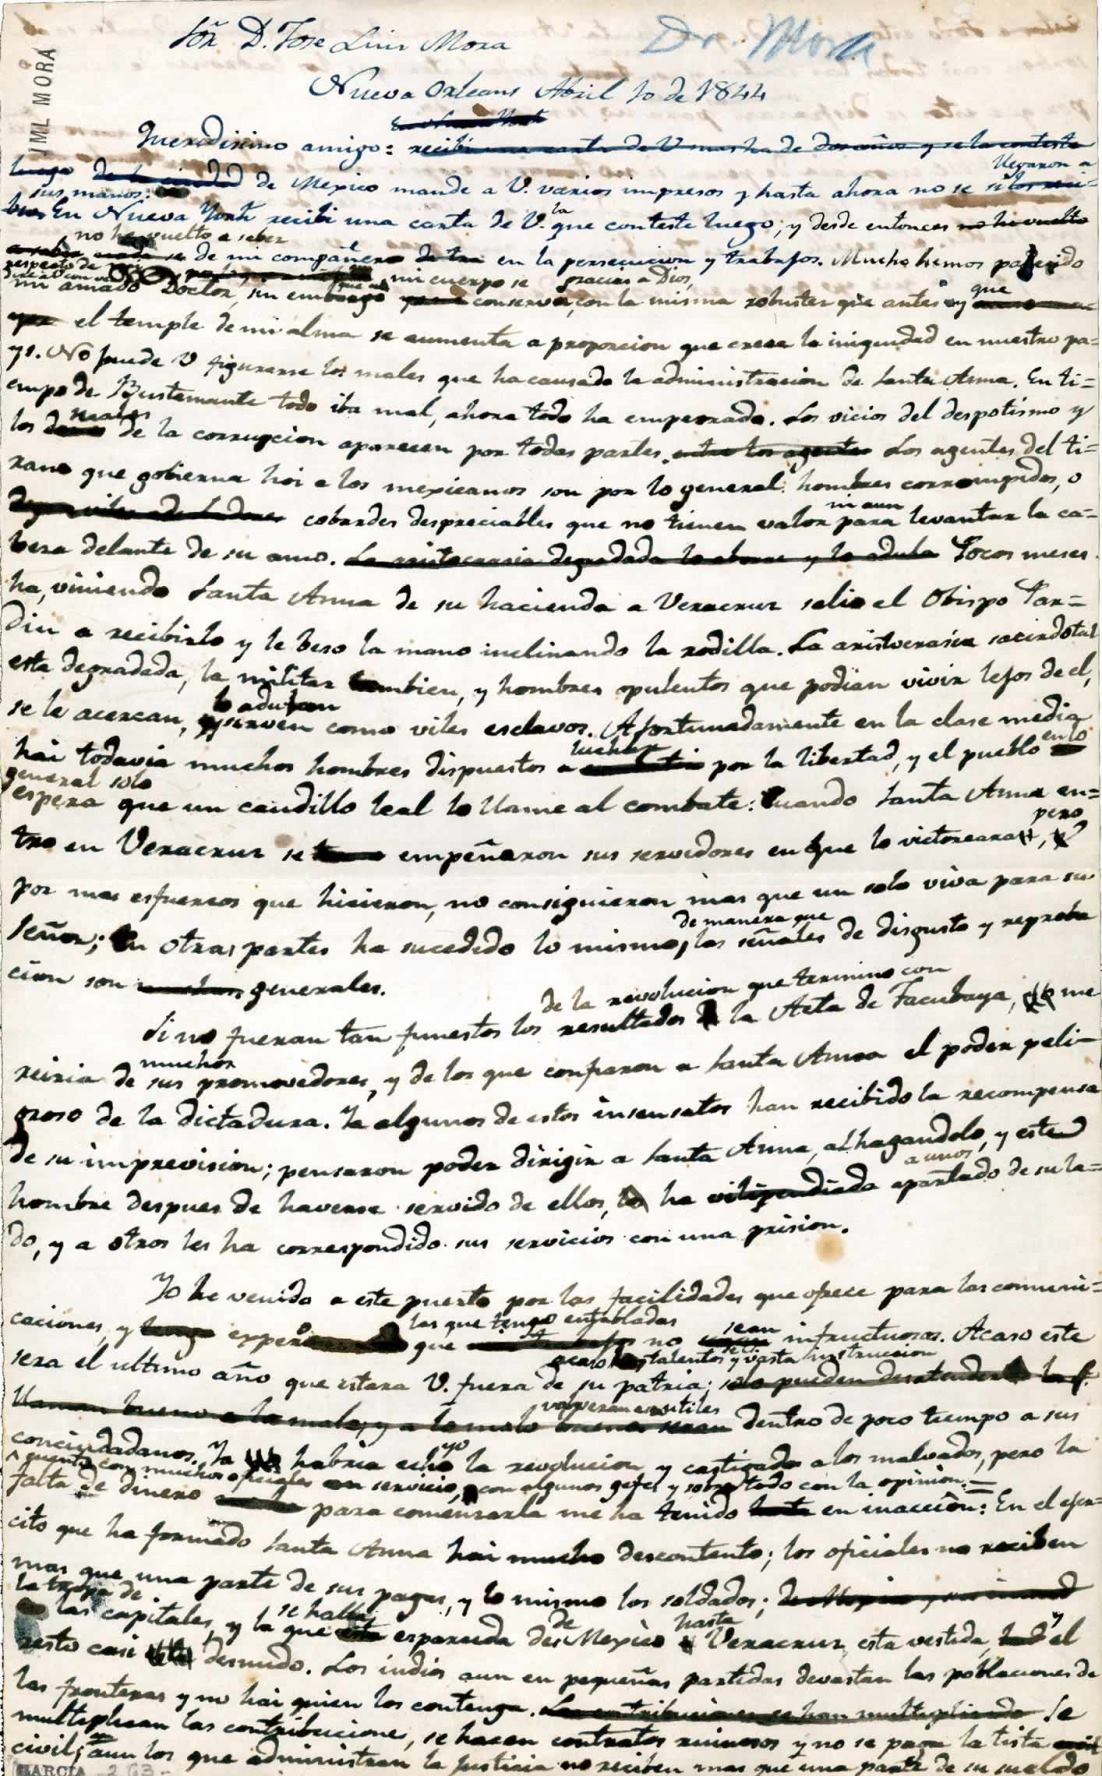 Sor. D. Jose Luis Mora
Dr. Mora
JML MORA
Nueva Orleans Abril 10 de 1844
Queridisimo amigo: recibi una carta de V. mas ha de dos años y se la conteste
luego de la ciudad de Mexico mande a V. varios impresos y hasta ahora no se si llegaron a
sus manos. En Nueva York recibi una carta de V. que la conteste luego; y desde entonces no he vuelto
no he vuelto a saber
de mi compañero en la persecucion y trabajos. Mucho hemos padecido
mi amado Doctor, sin embargo mi cuerpo se conserva, gracias a Dios, con la misma robustez que antes y que
el temple de mi alma se aumenta a proporcion que crece la iniquidad en nuestro pa=
ys. No puede V figurarse los males que ha causado la administracion de Santa Anna. En ti=
empo de Bustamante todo iba mal, ahora todo ha empeorado. Los vicios del despotismo y
los de la corrupcion aparecen por todas partes. entre los agentes Los agentes del ti=
rano que gobierna hoi a los mexicanos son por lo general hombres corrompidos, o
cobardes despreciables que no tienen valor ni aun para levantar la ca=
beza delante de su amo. La aristocracia degradada lo adula Pocos meses
ha, viniendo Santa Anna de su hacienda a Veracruz salio el Obispo Par=
diu a recibirlo y le beso la mano inclinando la rodilla. La aristocrasia sacerdotal
esta degradada, la militar tambien, y hombres opulentos que podian vivir lejos de el,
se le acercan, lo adulan y sirven como viles esclavos. Afortunadamente en la clase media
hai todavia muchos hombres dispuestos a luchar por la libertad, y el pueblo en lo
general solo
espera que un caudillo leal lo llame al combate: Cuando Santa Anna en=
tro en Veracruz se empeñaron sus servidores en que lo victorearan, pero
por mas esfuerzos que hicieron, no consiguieron mas que un solo viva para su
señor; En otras partes ha sucedido lo mismo, de manera que las señales de disgusto y reproba
cion son muchas generales.
Si no fueran tan funestos los resultados de la revolucion que termino con la Acta de Tacubaya, me
reiria de muchos sus promovedores, y de los que confiaron a Santa Anna el poder peli=
groso de la dictadura. Ya algunos de estos insensatos han recibido la recompensa
de su imprevision; pensaron poder dirigir a Santa Anna, alhagandolo, y este
hombre despues de haverse servido de ellos, ha vilipendiado a unos apartado de su la=
do, y a otros les ha correspondido sus servicios con una prision.
Yo he venido a este puerto por las facilidades que ofrece para las comuni=
caciones, y que las que tengo entabladas no sean infructuosas. Acaso este
sera el ultimo año que estara V. fuera de su patria; acaso sus talentos y vasta instruccion
llaman bueno a lo malo, y a lo malo bueno volveran a ser utiles dentro de poco tiempo a sus
conciudadanos. Ya habria echo yo la revolucion y castigado a los malvados, pero la
cuento con muchos oficiales en servicio, con algunos gefes y sobre todo con la opinion:
falta de dinero para comenzarla me ha tenido en inaccion: En el ejer=
cito que ha formado Santa Anna hai mucho descontento; los oficiales no reciben
mas que una parte de sus pagas, y lo mismo los soldados;
la tropa de
las capitales, y la que se halla esparcida desde Mexico hasta Veracruz esta vestida, y el
resto casi desnudo. Los indios aun en pequeñas partidas devastan las poblaciones de
las fronteras y no hai quien los contenga. Las contribuciones se han multiplicado Se
multiplican las contribuciones, se hacen contratos ruinosos y no se paga la lista
civil; aun los que administran la justicia no reciben mas que una parte de su sueldo
GARCÍA 263